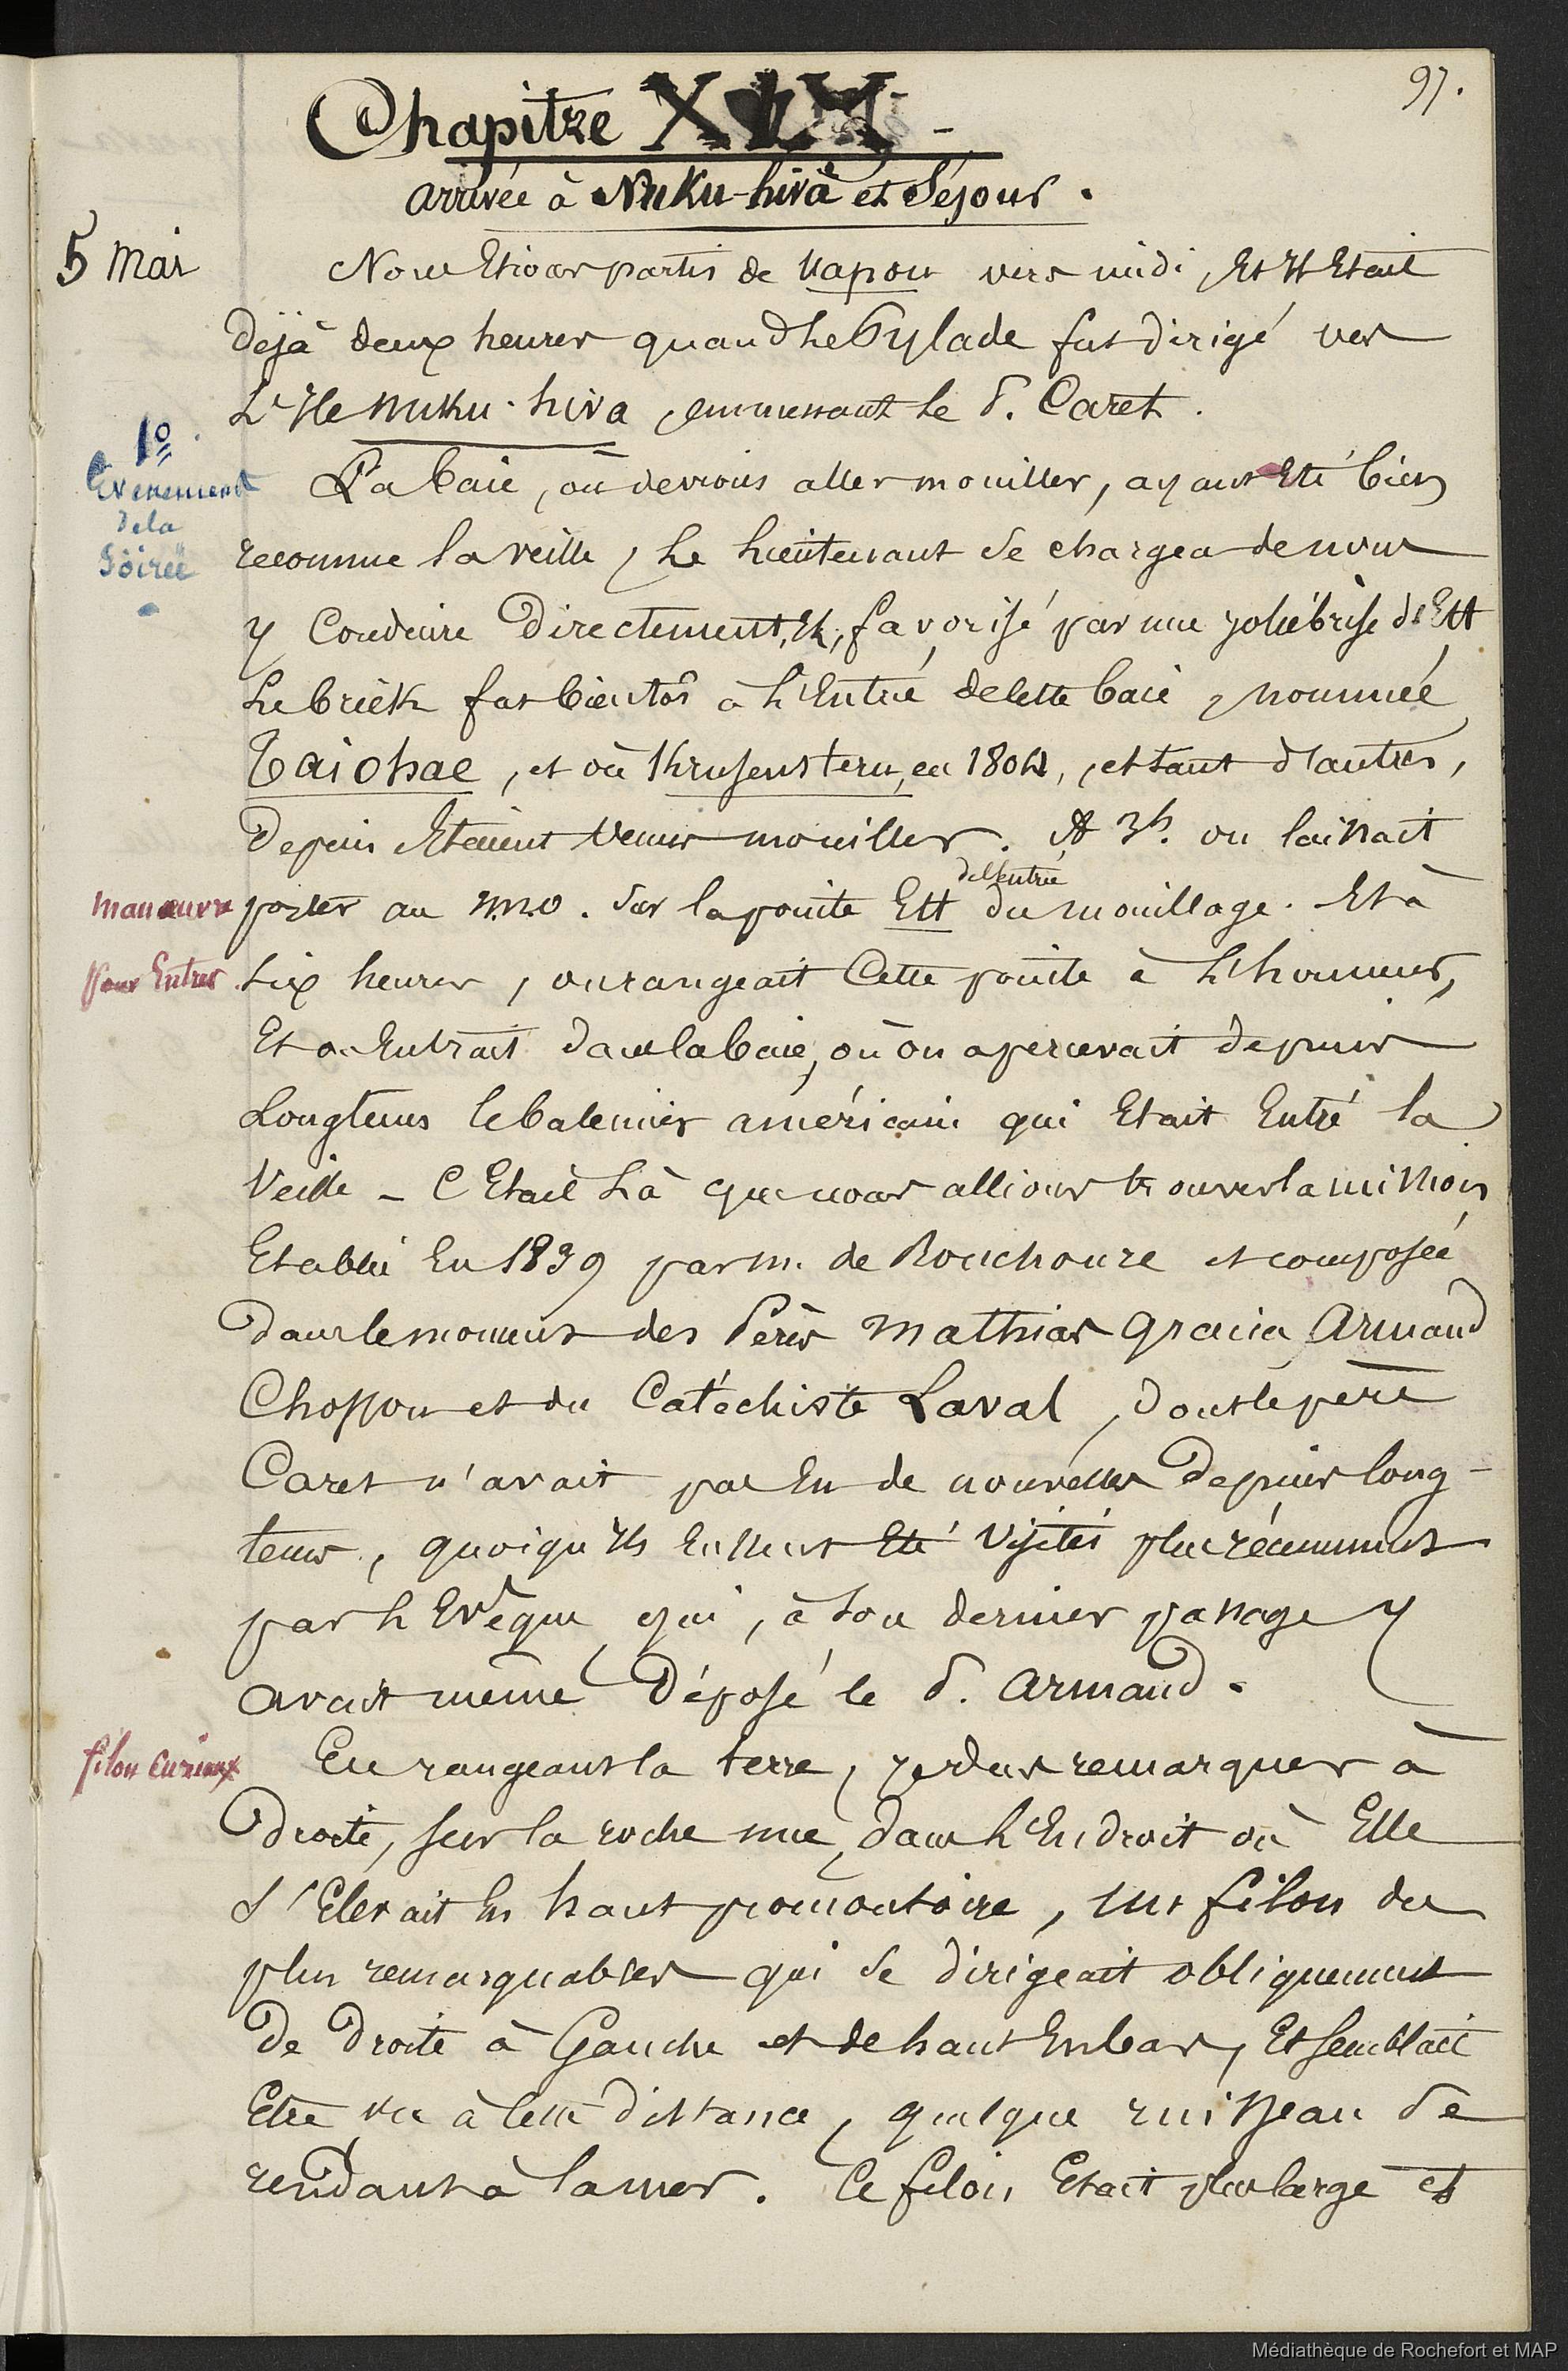 97.
Chapitre
arrivée à Nuku-hiva et Séjour.
5 Mai
Nous Etions partis de Uapou vers midi, Et Il Etait
Déjà deux heures quand Le Pylade fut Dirigé vers
L'Ile nuku-hiva, emmenant le P. Caret.
1º
Evenement
de la
Soirée
La baie, où devions aller mouiller, ayant Eté bien
reconnue la veille, Le Lieutenant se chargea de nous
y Conduire Directement, Et, favorisé par une jolie brise d'Est
Le brick fut bientôt à L'Entrée de cette baie, nommée
Taiohae, et où Krusenstern, en 1804, et tant d'autres,
Depuis Etaient venus mouiller. A 3h. on laissait
de l'entrée
manœuvre
porter au N.N.O. sur la pointe Est du mouillage. Et à
pour Entrer
Six heures, on rangeait Cette pointe à L'honneur,
Et on Entrait dans la baie, où on apercevait depuis
Longtems le baleinier américain qui Etait Entré la
Veille - C'Etait Là que nous allions trouver la mission
Etablie En 1839 par m. de Rouchouze et composée
Dans le moment des Pères Mathias Gracia, Armand
Chosson et du Catéchiste Laval, dont le père
Caret n'avait pas Eu de nouvelles Depuis long-
tems, quoiqu'Ils Eussent Eté Visités plus récemment
par L'Evêque qui, à Son dernier passage y
avait même Déposé le P. Armand.
filon curieux
En rangeant la terre, je dus remarquer à
Droite, sur la roche nue, dans L'Endroit où Elle
S'Elevait En haut promontoire, un filon des
plus remarquables qui se dirigeait obliquement
De Droite à Gauche et de haut En bas, Et semblait
Etre vu à cette distance, quelque ruisseau se
rendant à la mer. Ce filon Etait plus large et
Médiathèque de Rochefort et MAP